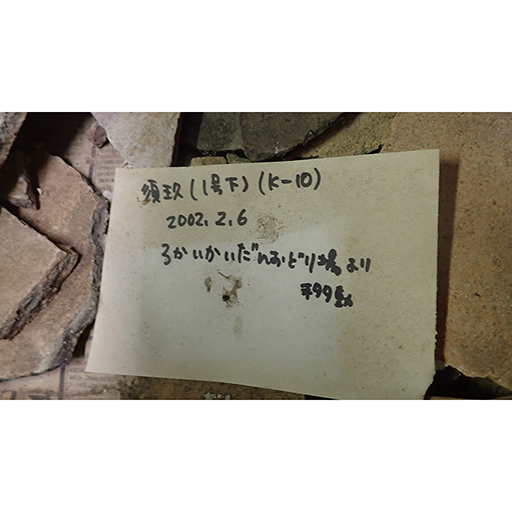 須玖(1号下)(K-10)
2002.2.6
3かいかいだんおどり場より